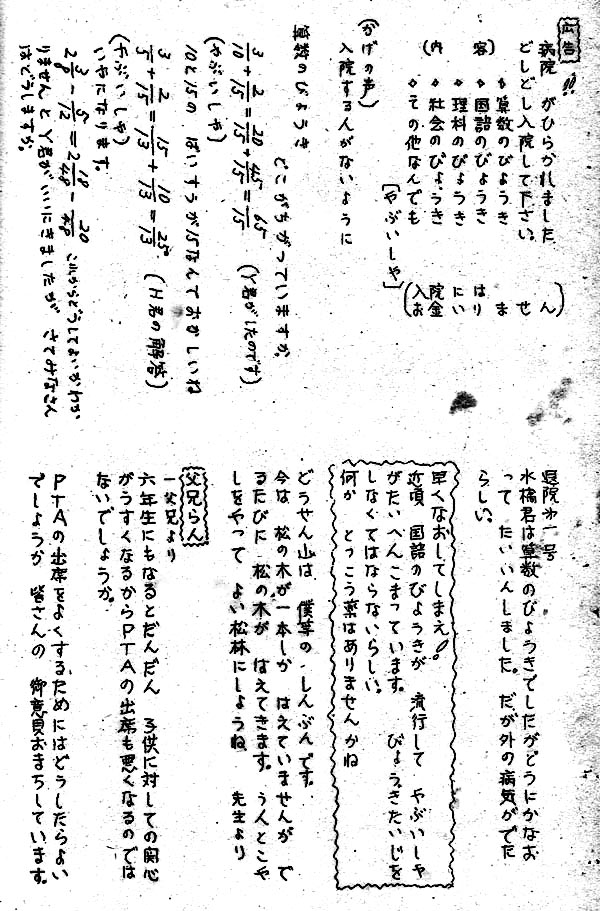 広告
病院 がひらかれました!!
どしどし入院して下さい。
(内 容)
◦算数のびょうき
◦国語のびょうき
◦理科のびょうき
◦社会のびょうき
◦その他なんでも
(入院にはお金いりません)
[やぶいしゃ]
(かげの声)
入院する人がないように
算数のびょうき
どこがちがっていますか。
3/10+2/15=20/15+45/15=65/15 (Y君がしたのです)
(やぶいしゃ)
10と15の ばいすうが15なんておかしいね
3/5+2/15=15/13+10/13=25/13 (H君の解答)
(やぶいしゃ)
いやになります。
2 3/8-5/12=2 18/48-20/48 これからどうしてよいかわか
りませんと Y君がいいにきましたが さてみなさん
はどうしますか。
退院第一号
水橋君は算数のびょうきでしたがどうにかなお
って たいいんしました。 だが外の病気がでた
らしい。
早くなおしてしまえ!!
近頃 国語のびょうきが 流行して やぶいしゃ
がたいへんこまっています。 びょうきたいじを
しなくてはならないらしい。
何か とっこう薬はありませんかね
どうせん山は 僕等の しんぶんです。
今は 松の木が一本しか はえていませんが で
るたびに 松の木が はえてきます。 うんとこや
しをやって よい松林にしようね 先生より
父兄らん
一父兄より
六年生にもなるとだんだん 子供に対しての関心
がうすくなるからPTAの出席も悪くなるのでは
ないでしょうか。
PTAの出席をよくするためにはどうしたらよい
でしょうか 皆さんの 御意見おまちしています。